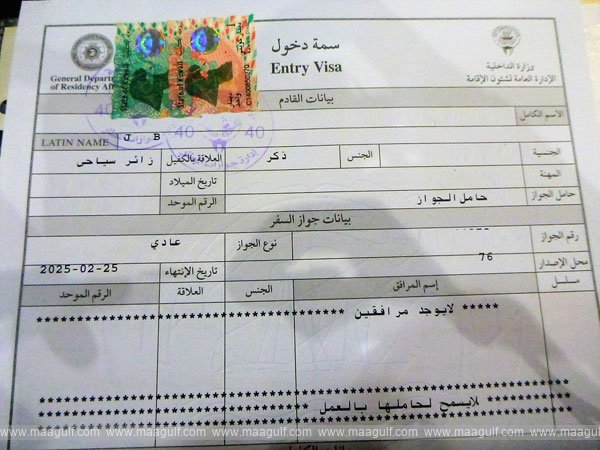 سمة دخول
Entry Visa
وزارة الداخلية
الإدارة العامة لشئون الإقامة
General Depart
of Residency Aff
بيانات القادم
الاسم الكامل
LATIN NAME J B
الجنسية
الجنس ذكر
العلاقة بالكفيل زائر سياحى
المهنة
تاريخ الميلاد
حامل الجواز حامل الجواز
الرقم الموحد
بيانات جواز السفر
رقم الجواز
نوع الجواز عادي
محل الإصدار 76
تاريخ الإنتهاء 2025-02-25
مسلسل إسم المرافق الجنس العلاقة الرقم الموحد
لايوجد مرافقين
لايسمح لحاملها بالعمل
www.maagulf.com www.maagulf.com www.maagulf.com www.maagulf.com www.maagulf.com www.maagulf.com